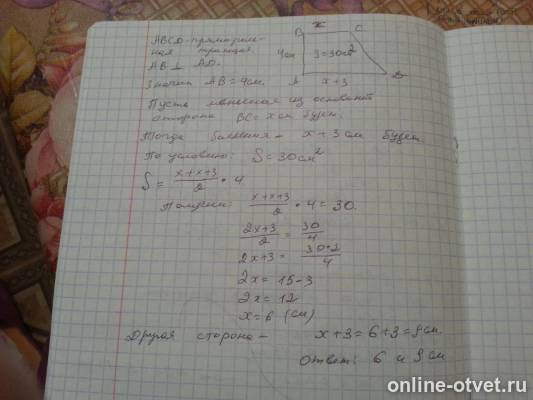 ABCD - прямоуголь-
ная трапеция
AB ⊥ AD.
Значит AB = 4см.
B x C
4см S=30см²
A x+3 D
Пусть меньшая из оснований
сторона BC = x см будет.
Тогда большая - x + 3 см будет.
По условию: S = 30 см²
S = (x+x+3)/2 · 4
Получим: (x+x+3)/2 · 4 = 30.
(2x+3)/2 = 30/4
2x+3 = (30·2)/4
2x = 15-3
2x = 12
x = 6 (см)
Другая сторона - x+3 = 6+3 = 9 см.
Ответ: 6 и 9 см
online-otvet.ru